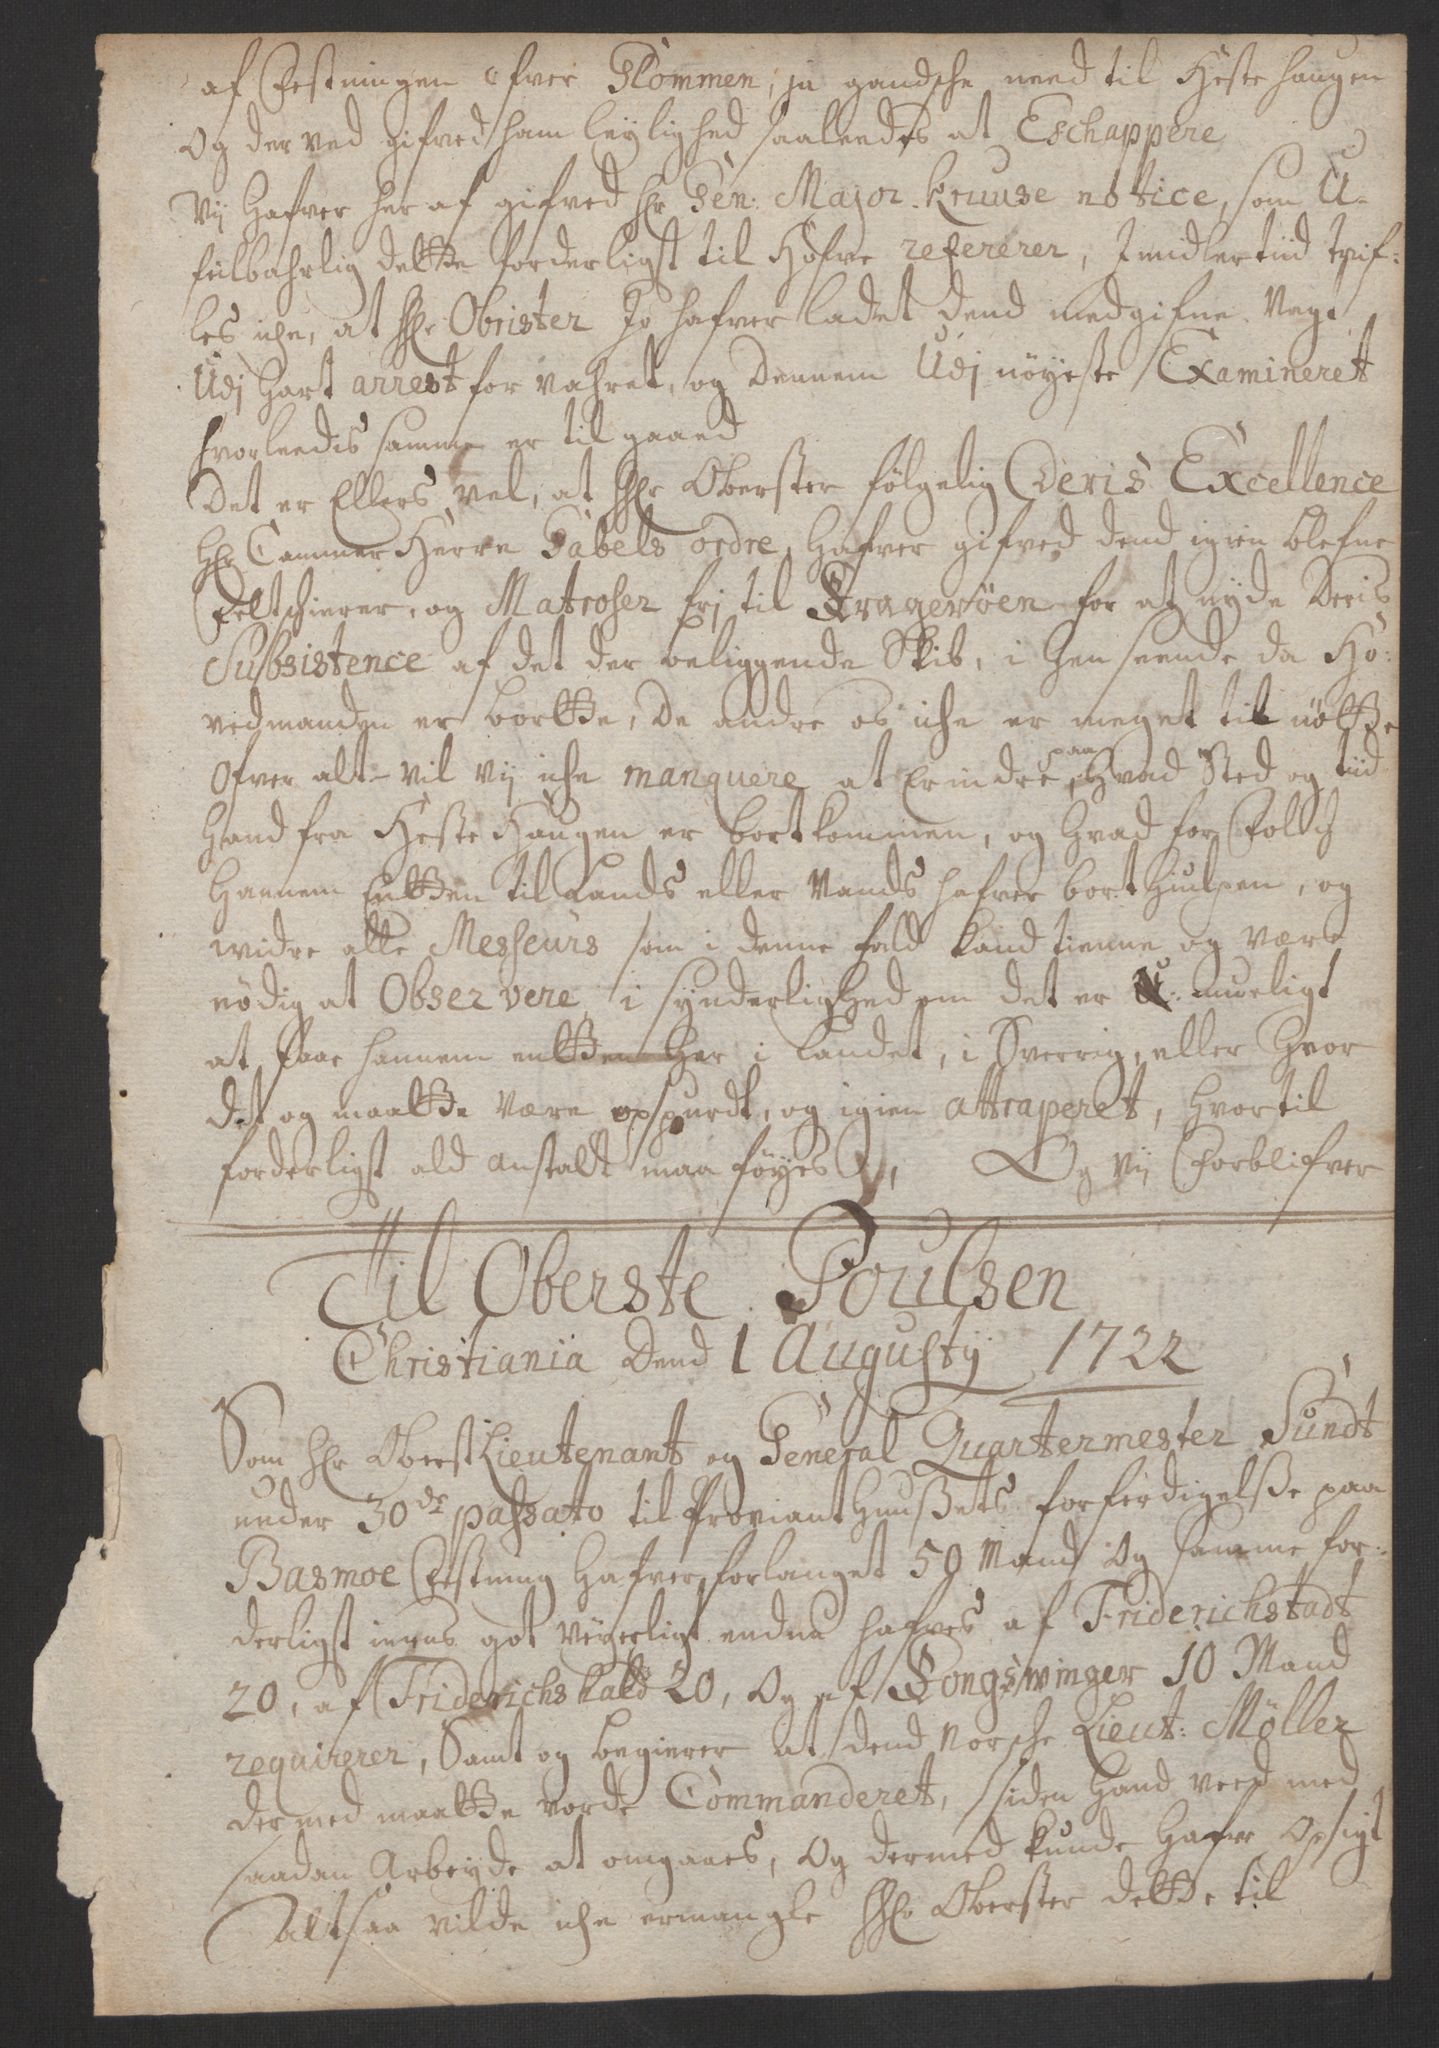 af Festningen ofver Glommen, ja gandsche need til Hestehaugen
Og derved gifved ham leylighed saaleedes at Eschappere
Vij Hafver her af gifved Hr Gen: Major Kruuse notice, som U-
feilbahrlig dette forderligst til Hofve refererer, Imidlertiid tvif-
les iche, at Hr Obrister Jo hafver ladet dend medgifne Vagt
Udj Hart arrest forvahret, og Dennem Udj nöyeste Examineret
hvorleedis samme er tilgaaed
Det er Ellers vel, at Hr Oberster fölgelig Deris Excellence
Hr CammerHerre Gabels ordre, Hafver gifved dend igien blefne
Feltschierer, og Matroser frj til Kragerøen for at nyde Deris
Subsistence af det der beliggende Skib, i Henseende da Ho-
vedmanden er bortte, De andre os iche er meget til nötte
Ofver alt vil vij iche manquere at Erindre, paa Hvad Sted og tiid
Hand fra Hestehaugen er bortkommen, og Hvad for Folch
Hannem Entten til Lands eller Vands hafver bort Hiulpen, og
widre alle Messeurs som i denne fald kand tienne og være
nödig at Observere, i synderlighed om det er U: mueligt
at faae hannem entten Her i Landet, i Sverrig, eller Hvor
det og maatte være opspurdt, og igien attraperet, Hvortil
forderligst ald anstaldt maa föyes, Og Vij Forblifver
Til Oberste Poulsen
Christiania Dend 1 Augustij 1722
Som Hr Oberst Lieutenant og General Quartermester Sundt
under 30de passato til Proviant Huusets forferdigelse paa
Basmoe Festning Hafver forlanget 50 Mand Og samme for-
derligst got endnu hafves af Friderichstadt
20, af Friderichshald 20, Og af Kongswinger 10 Mand
requirerer, Samt og begierer at dend Norsche Lieut: Möller
dermed maatte vorde Commanderet, siden Hand veed med
saadan Arbeyde at omgaaes, Og dermed kunde Hafve Opsigt
Altsaa vilde iche ermangle Hr Oberster dette til